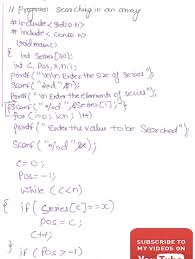 // Program searching in an array
# include <stdio.h>
# include <conio.h>
void main()
{
int Series[30];
int C, Pos, x, n, i;
printf("\n\n Enter the size of Series");
Scanf("%d", &n);
printf("\n Enter the elements of series");
for (i=0; i<n; i++)
Scanf("%d", &Series[i]);
printf(" Enter the value to be Searched");
Scanf("%d", &x);
C=0;
Pos=-1;
While (C<n)
{ if (Series[C]==x)
Pos = C;
C++;
}
if (Pos>-1)
SUBSCRIBE TO
MY VIDEOS ON
You Tube